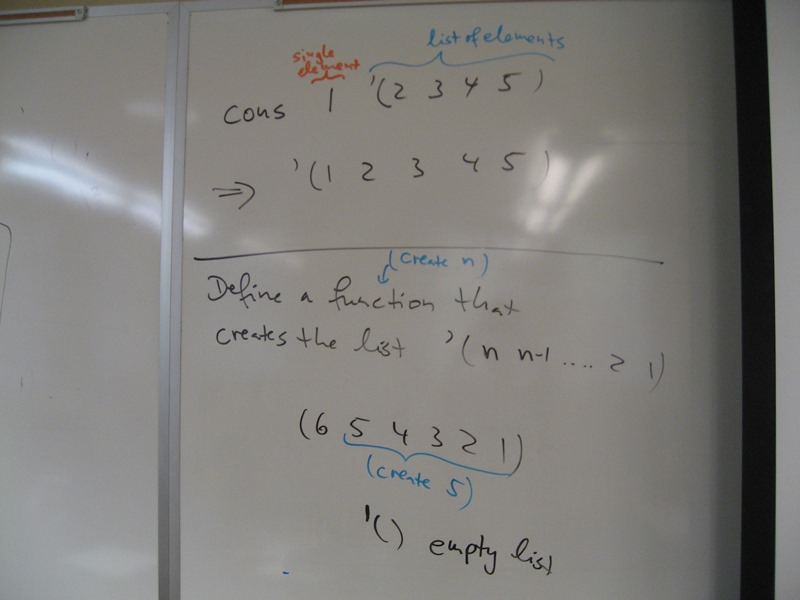 list of elements
single
element
cons 1 '(2 3 4 5)
=> '(1 2 3 4 5)
(create n)
Define a function that
creates the list '(n n-1 .... 2 1)
(6 5 4 3 2 1)
(create 5)
'() empty list